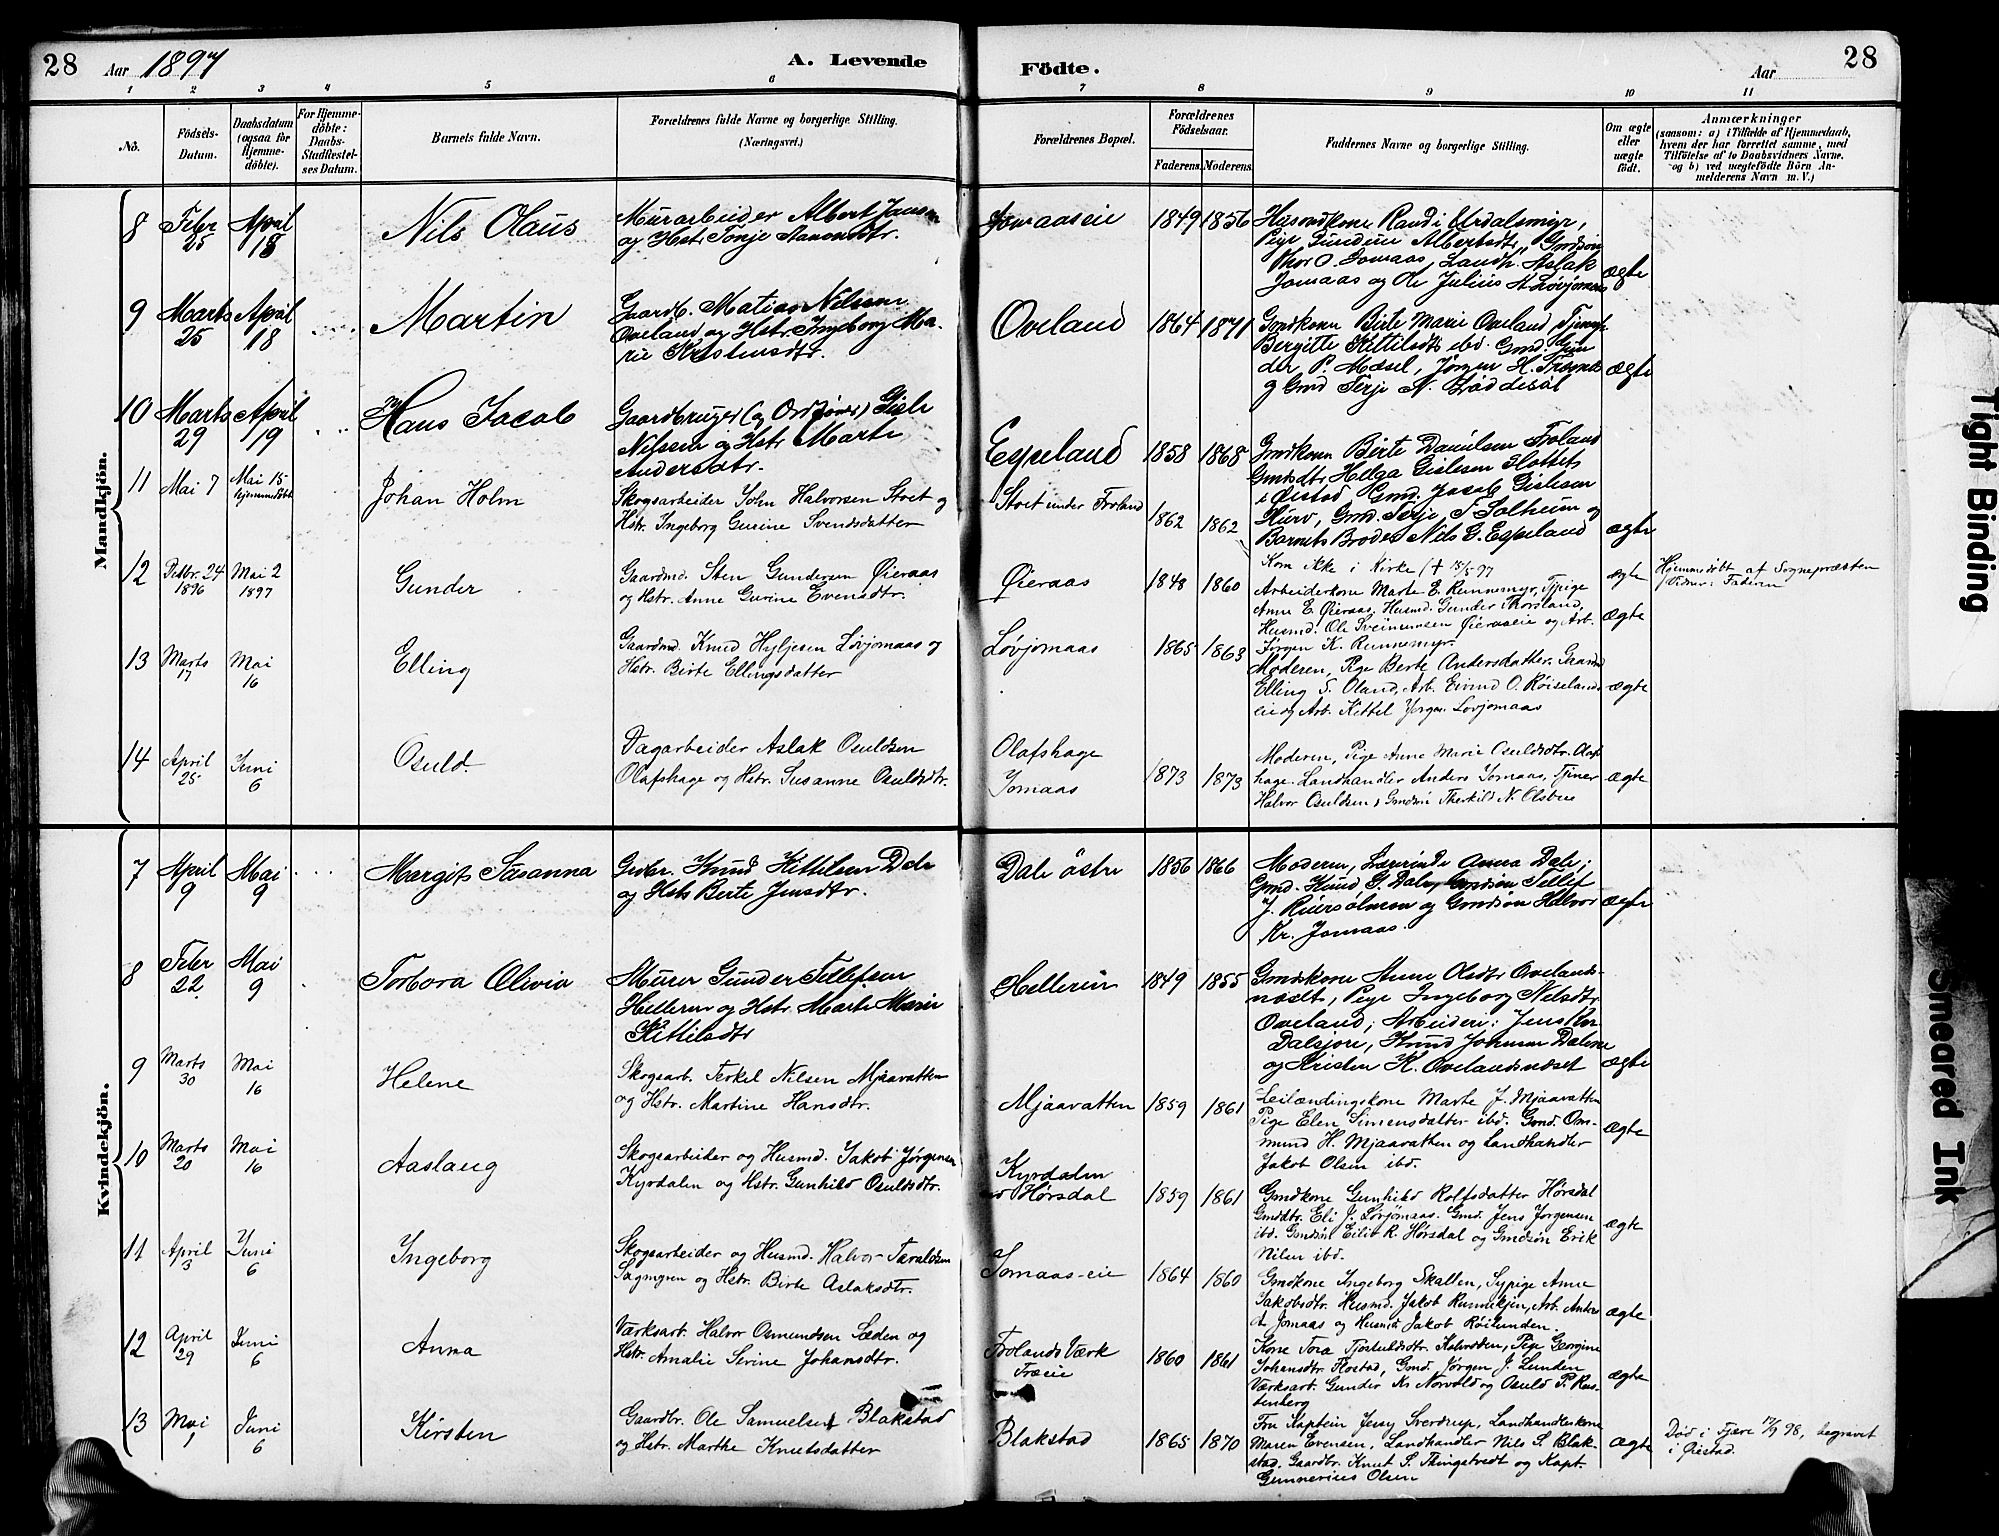 28 Aar 1897 A. Levende Födte. Aar 28
1 2 3 4 5 6 7 8 9 10 11
No.
Födsels-Datum.
Daabsdatum (ogsaa for Hjemme-döbte).
For Hjemme-döbte: Daabs-Stadfæstel-ses Datum.
Barnets fulde Navn.
Forældrenes fulde Navne og borgerlige Stilling. (Næringsvei.)
Forældrenes Bopæl.
Forældrenes Födselsaar.
Faderens. Moderens.
Faddernes Navne og borgerlige Stilling.
Om ægte eller uægte födt.
Anmærkninger
(saasom: a) i Tilfælde af Hjemmedaab,
hvem der har forrettet samme, med
Tilföielse af to Daabsvidners Navne.
og b) ved uægtefödte Börn An-
melderens Navn m. V.)
Mandkjön.
8 Febr 25 April 18 Nils Olaus
Murarbeider Albert
og Hstr. Torje Aanonsdtr.
Jomaaseie 1849 1856
Husmdkone Randi Urdalsmyr,
Pige Gundine Albertsdtr, Gmdsøn
Thor O. Jomaas, Landh. Aslak
Jomaas og Ole Julius
ægte
9 Marts 25 April 18 Martin
Gaardb. Matias Nilsen
Oveland og Hstr. Ingeborg Ma-
rie Kristensdtr.
Oveland 1864 1871
Gmdkone Birte Marie Oveland,
Bergitte Kittilsdtr ibd. Gmd. Gun
der P. Mosel, Jørgen H.
og Gmd Terje N.
ægte
10 Marts 29 April 19 Hans Jacob
Gaardbruger (og Ordfører) Gisle
Nilssen og Hstr Marte
Andersdtr.
Espeland 1858 1868
Gmdkone Birte Danielsen Froland
Gmdsdtr Helga Gislesen
i Øiestad Gmd. Jacob Gislesen
Hurv, Gmd. Terje T. Solheim og
Barnets Broder Nils G. Espeland
ægte
11 Mai 7 Mai 15 hjemmedöbt Johan Holm
Skogsarbeider John Halvorsen Stoet og
Hstr. Ingeborg Gurine Svendsdatter
Stoet under Froland 1862 1862
Kom ikke i Kirke († 18/5 97
ægte
Hjemmedöbt af Sognepræsten
Vidner: Faderen
12 Decbr. 24 1896 Mai 2 1897 Gunder
Gaardmd. Sten Gundersen Øieraas
og Hstr. Anne Gurine Evensdtr.
Øieraas 1848 1860
Arbeiderkone Marte E. Runnemyr,
Anne E. Øieraas, Husmd. Gunder Thorsland,
Husmd. Ole Sveinunsen Øieraseie og Arb.
Jørgen K. Runnemyr.
ægte
13 Marts 17 Mai 16 Elling
Gaardmd. Knud Hyljesen Løvjomaas og
Hstr. Birte Ellingsdatter
Løvjomaas 1865 1863
Moderen, Pige Berte Andersdatter. Gaardmd
Elling S. Oland, Arb. Eivind O. Røiseland-
eie og Arb. Kittel Jørgen. Løvjomaas
ægte
14 April 25 Juni 6 Osuld.
Dagarbeider Aslak Osuldsen
Olafshage og Hstr. Susanne Osuldsdtr.
Olafshage
Jomaas 1873 1873
Moderen, Pige Anne Marie Osuldsdtr. Olafs
hage. Landhandler Anders Jomaas, Tjener
Halvor Osuldsen, Gmdsøn Therkild N. Olsbu
ægte
Kvindekjön.
7 April 9 Mai 9 Margit Susanna
Gbr. Knud Kittelsen Dale
og Hstr Berte Jensdtr.
Dale østre 1856 1866
Moderen, Lærerinde Anna Dale;
Gmd. Knud G. Dale, Gmdsøn Tellef
J. Riersølmoen og Gmdsøn Halvor
Kr. Jomaas.
ægte
8 Febr 22 Mai 9 Torbora Olivia
Murer Gunder Tellefsen
Helleren og Hstr. Marte Marie
Kittilsdtr
Helleren 1849 1855
Gmdkone Anne Olsdtr Oveland-
næset, Pige Ingeborg Nelsdtr
Oveland; Arbeidere: Jens Kr.
Dalsjori, Knud Johnsen Dalene
og Kristen K. Ovelandsnæset
ægte
9 Marts 30 Mai 16 Helene
Skogsarb. Terkel Nilsen Mjaavatten
og Hstr. Martine Hansdtr.
Mjaavatten 1859 1861
Leilændingskone Marte J. Mjaavatten
Pige Elen Simensdatter ibd. Gmd. Om-
mund H. Mjaavatten og Landhandler
Jakob Olsen ibd.
ægte
10 Marts 20 Mai 16 Aaslaug
Skogsarbeider og Husmd. Jakob Jørgensen
Kyrdalen og Hstr. Gunhild Osuldsdtr.
Kyrdalen
Hørsdal 1859 1861
Gmdkone Gunhild Rolfsdatter Hørsdal
Gmddtr. Eli J. Løvjomaas. Gmd. Jens Jørgensen
ibd. Gmdsøn Eilev R. Hørsdal og Gmdsøn Erik
Nilsen ibd.
ægte
11 April 3 Juni 6 Ingeborg
Skogsarbeider og Husmd. Halvor Taraldsen
Sagmyren og Hstr. Birte Aslaksdtr.
Jomaas-eie 1864 1860
Gmdkone Ingeborg Skallen, Sypige Anne
Jakobsdtr. Husmd. Jakob Runnekjen, Arb. Anders
Jomaas og Husmd Jakob Røilunden.
ægte
12 April 29 Juni 6 Anna
Værksarb. Halvor Osmundsen Læden og
Hstr. Amalie Serine Johansdtr.
Frolands Værk
Træeie 1860 1861
Kone Tora Tjostulsdtr. Kalvsoden, Pige Georgine
Johansdtr. Flostad, Gmd. Jørgen J. Lunden
Værksarb. Gunder Kr Norvald og Osuld P. Rus-
tenberg
ægte
13 Mai 1 Juni 6 Kirsten
Gaardbr. Ole Samuelsen Blakstad
og Hstr. Marthe Knutsdatter
Blakstad 1865 1870
Fru Kaptein Jessy Sverdrup, Landhandlerkone
Maren Evensen, Landhandler Nils S. Blak-
stad. Gaardbr. Knut S. Tingstvedt og Kapt.
Gunnerius Olsen
ægte
Död i Fjære 17/9 98, begravet
i Øiestad.
Tight Binding
Smeared Ink